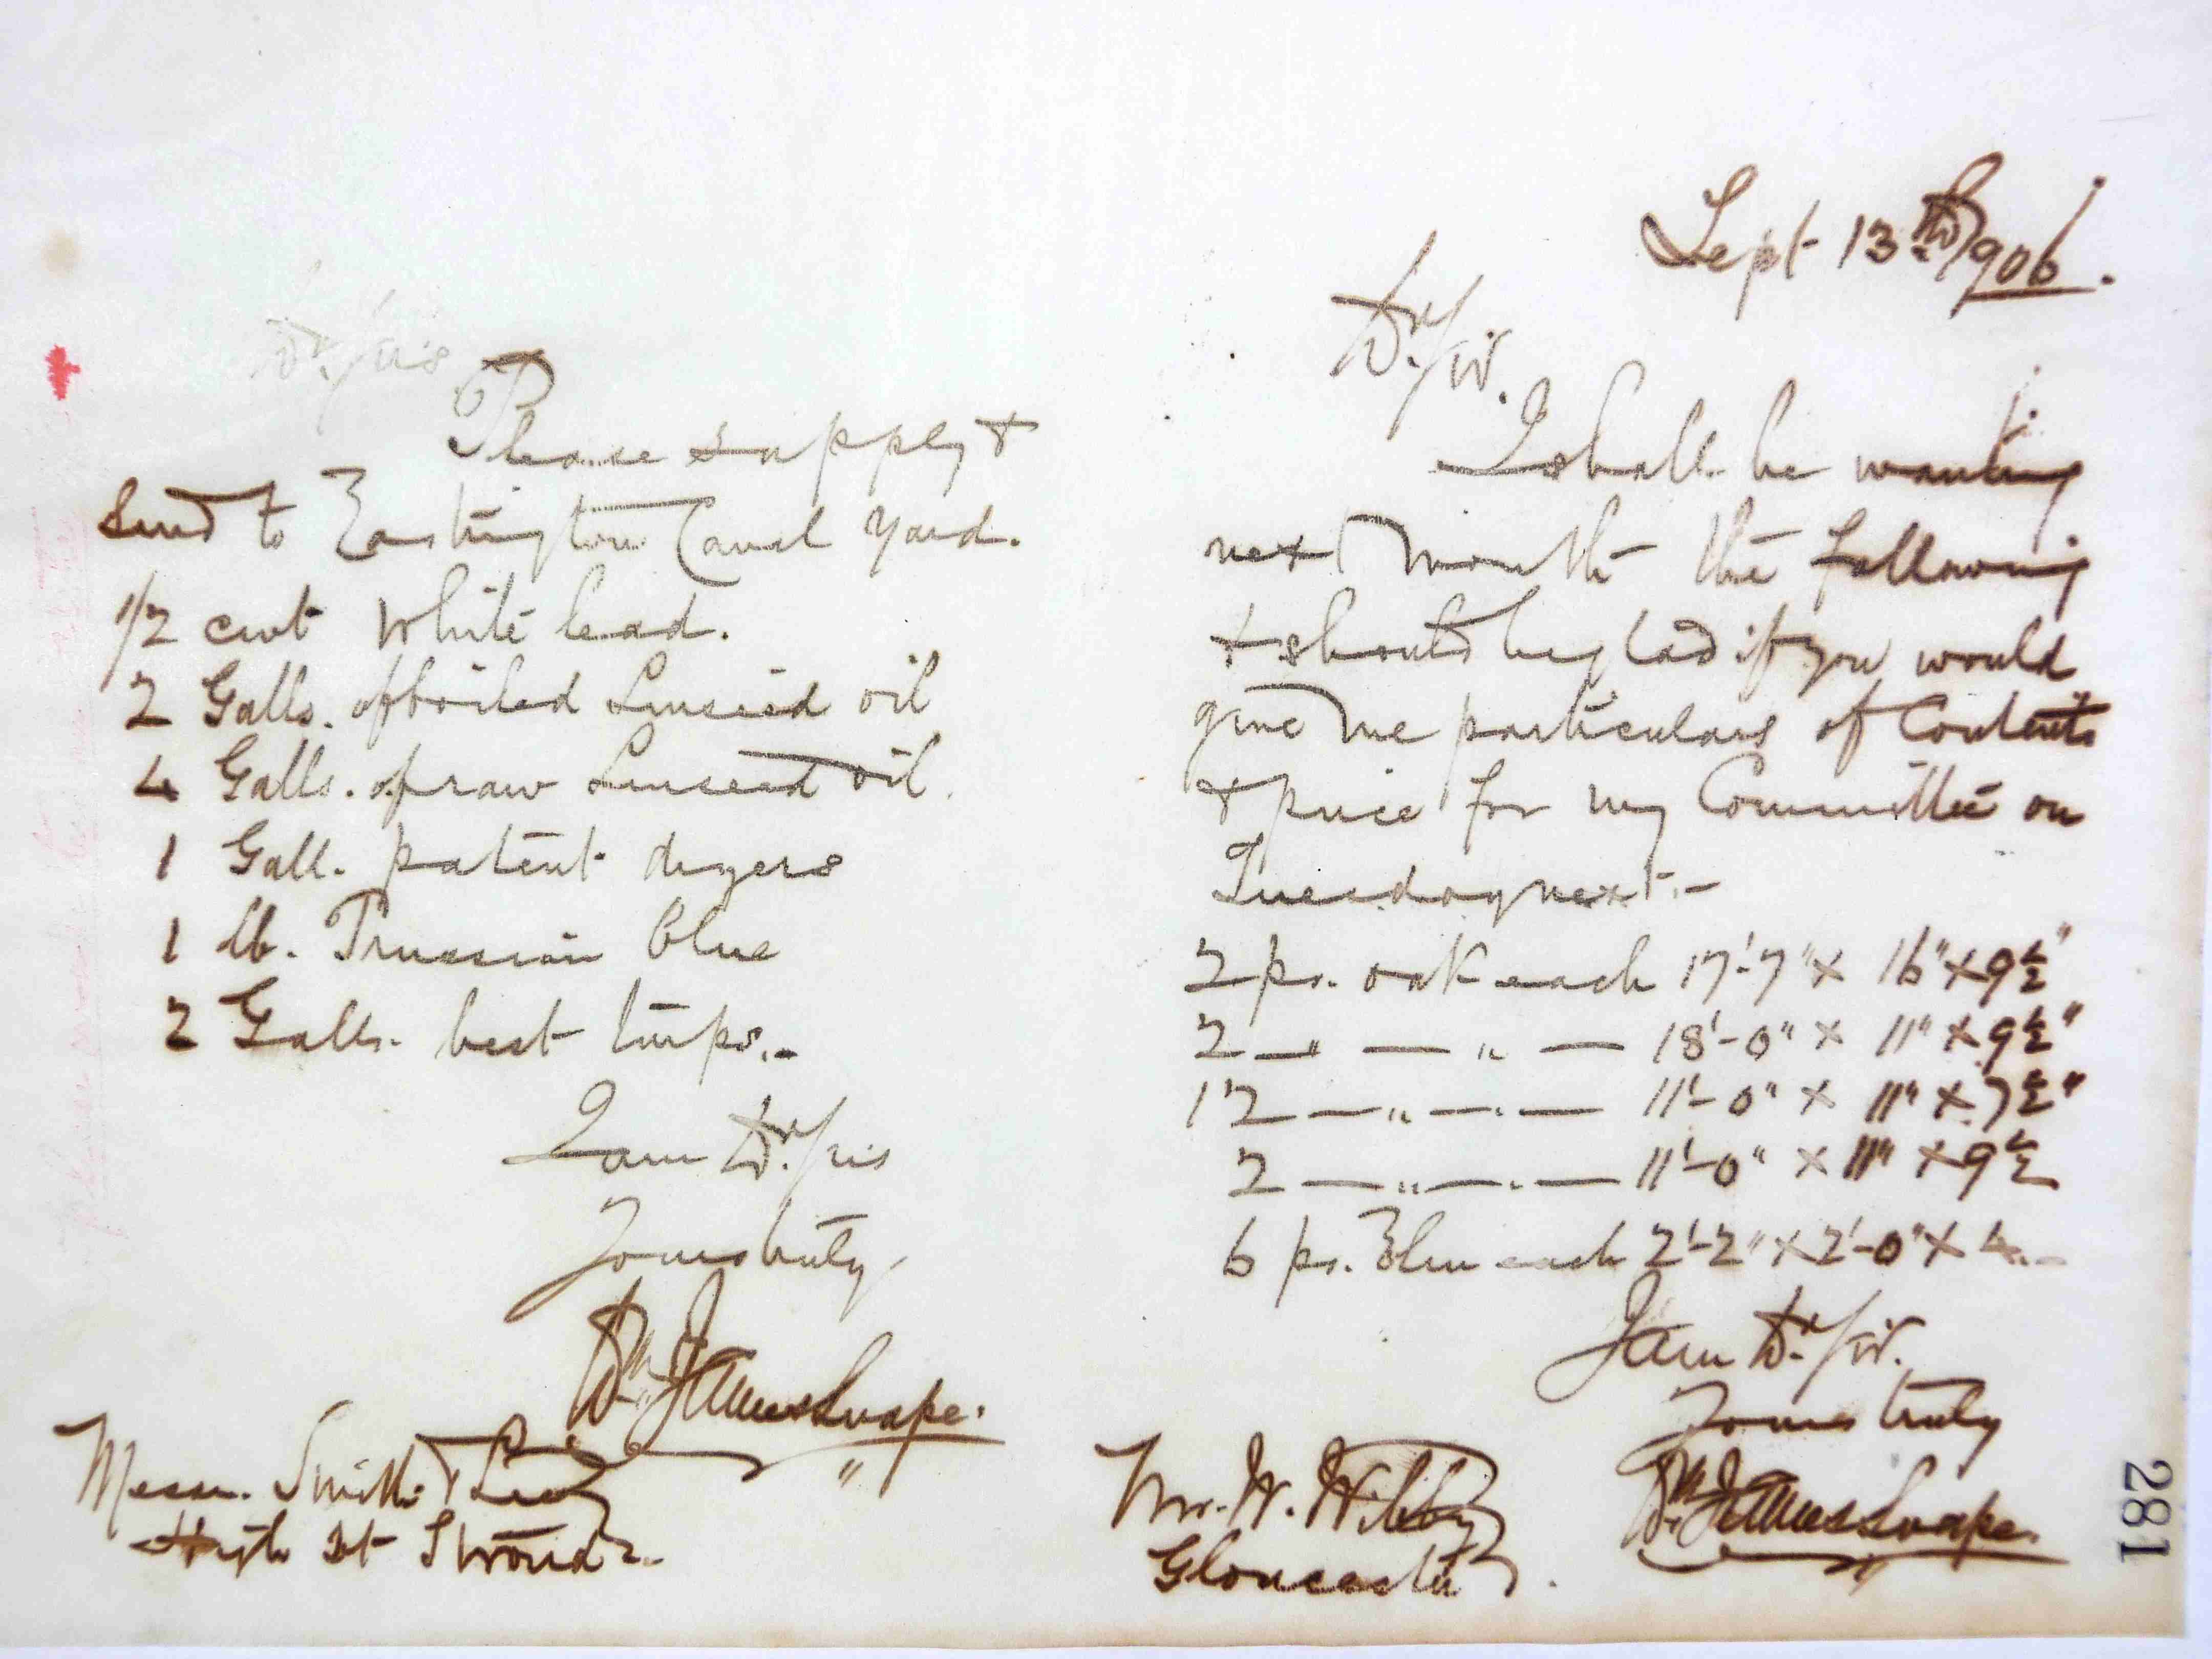 Dr. Sirs
Please supply &
send to Eastington Canal Yard.
1/2 cwt White lead.
2 Galls. of boiled Linseed oil
4 Galls. of raw Linseed oil.
1 Gall. patent dryers
1 lb. Prussian blue
2 Galls. best turps.-
I am Dr. Sirs
Yours truly
Wm. James Snape.
Messrs. Smith & Lee
High St Stroud.-
Sept 13th 1906.
Dr. Sir.
I shall be wanting
next month the following
& should be glad if you would
give me particulars of Contents
& price for my Committee on
Tuesday next.-
2 ps. oak each 17'-7" x 16" x 9½"
2 — " — " — 18'-0" x 11" x 9½"
12 — " — " — 11'-0" x 11" x 7½"
2 — " — " — 11'-0" x 11" x 9½
6 ps. Elm each 2'-2" x 2'-0" x 4.-
I am Dr. Sir.
Yours truly
Wm. James Snape.
Mr. W. Wibby
Gloucester.
281